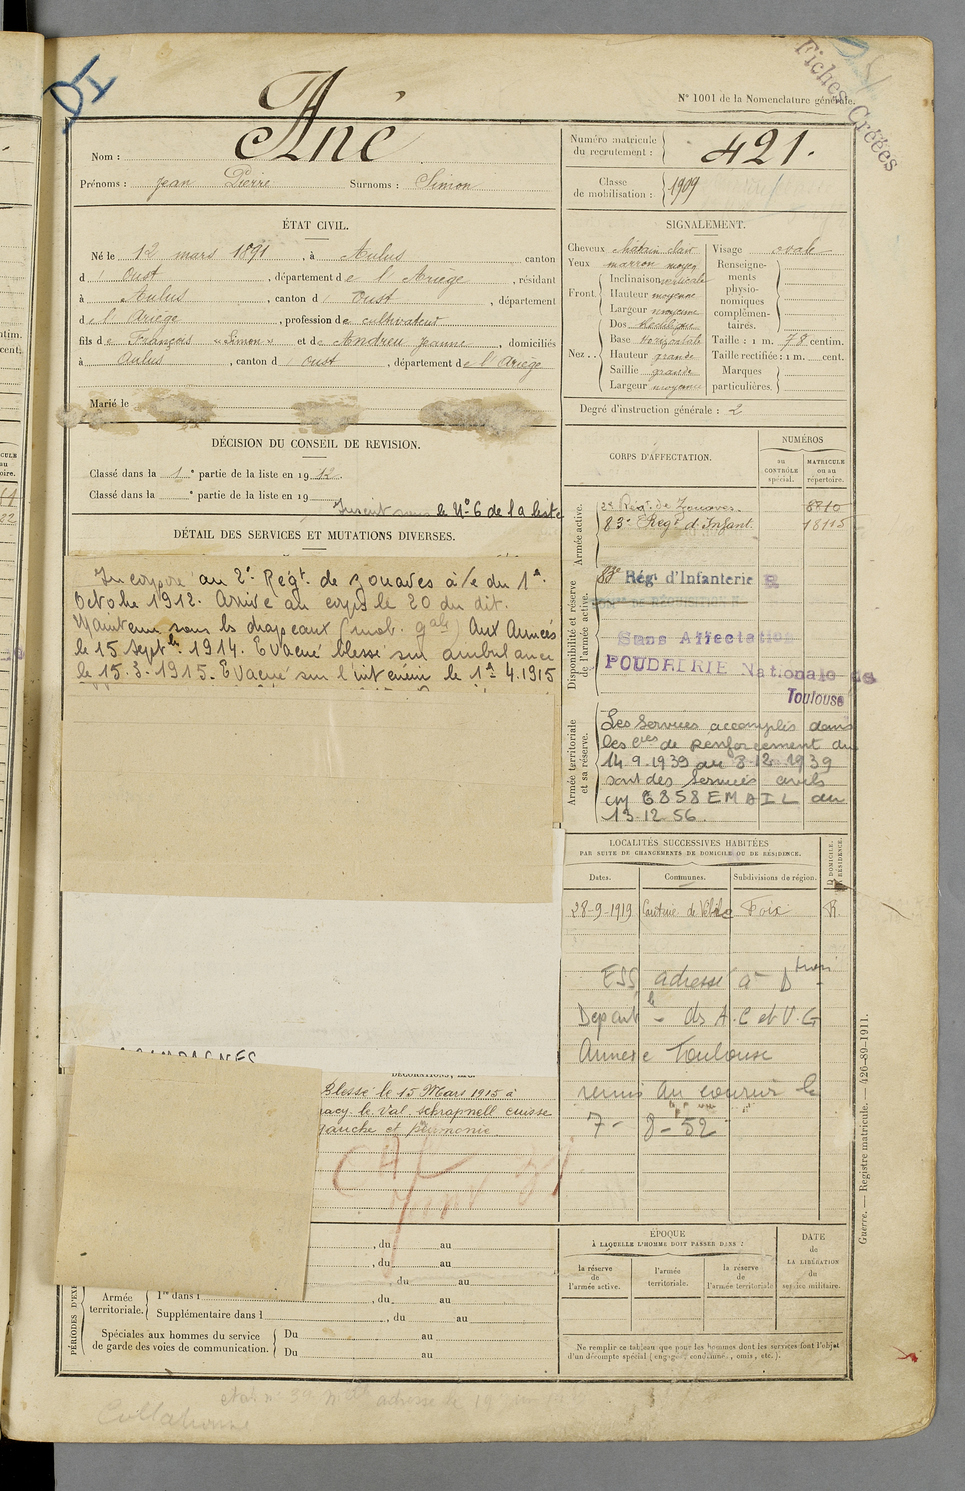 DI
Fiches Créées
N° 1001 de la Nomenclature générale.
Nom : Ané
Prénoms : Jean Pierre Surnoms : Simon
Numéro matricule du recrutement : 421.
Classe de mobilisation : 1909
ÉTAT CIVIL.
Né le 12 mars 1891, à Aulus canton
d' Oust, département de l'Ariège, résidant
à Aulus, canton d' Oust, département
de l'Ariège, profession de cultivateur
fils de François "Simon" et de Andreu Jeanne, domiciliés
à Aulus, canton d' Oust, département de l'Ariège
Marié le
SIGNALEMENT.
Cheveux châtain clair
Yeux marron moyen
Front. Inclinaison verticale
Hauteur moyenne
Largeur moyenne
Nez . . Dos rectiligne
Base horizontale
Hauteur grande
Saillie grande
Largeur moyenne
Visage ovale
Renseignements physionomiques complémentaires.
Taille : 1 m. 78 centim.
Taille rectifiée : 1 m. cent.
Marques particulières.
Degré d'instruction générale : 2
DÉCISION DU CONSEIL DE REVISION.
Classé dans la 1e partie de la liste en 1912.
Classé dans la e partie de la liste en 19
Inscrit sous le N° 6 de la liste
DÉTAIL DES SERVICES ET MUTATIONS DIVERSES.
Incorporé au 2e Régt de zouaves à/c du 1er
Octobre 1912. Arrivé au corps le 20 du dit.
Maintenu sous les drapeaux (mob. gale) Aux Armées
le 15 Septbre 1914. Evacué blessé sur ambulance
le 15.3.1915. Evacué sur l'intérieur le 1er 4.1915
CORPS D'AFFECTATION.
NUMÉROS
au CONTRÔLE spécial.
MATRICULE ou au répertoire.
Armée active.
2e Régt de Zouaves. 8810
83e Régt d'Infant. 18115
Disponibilité et réserve de l'armée active.
83e Régt d'Infanterie R
Sans Affectation
POUDRERIE Nationale de
Toulouse
Armée territoriale et sa réserve.
Les services accomplis dans
les Cies de Renforcement du
14.9.1939 au 8-12-1939
sont des services civils
CM 6858 EMAIL du
13.12.56.
LOCALITÉS SUCCESSIVES HABITÉES
PAR SUITE DE CHANGEMENTS DE DOMICILE OU DE RÉSIDENCE.
Dates. Communes. Subdivisions de région. D DOMICILE. R RÉSIDENCE.
28-9-1919 Foix R.
ESS adressé à Dtion
Departle des A.C et V.G
Annexe Toulouse
remis au coureur le
7- 8-52
CAMPAGNES
DÉCORATIONS, ETC.
Blessé le 15 Mars 1915 à
racy le Val schrapnell cuisse
gauche et pneumonie.
, du au
, du au
, du au
PÉRIODES D'EX
Armée territoriale. 1re dans l , du au
Supplémentaire dans l , du au
Spéciales aux hommes du service de garde des voies de communication. Du au
Du au
ÉPOQUE
À LAQUELLE L'HOMME DOIT PASSER DANS :
la réserve de l'armée active.
l'armée territoriale.
la réserve de l'armée territoriale
DATE de LA LIBÉRATION du service militaire.
Ne remplir ce tableau que pour les hommes dont les services font l'objet
d'un décompte spécial (engagé, condamné, omis, etc.).
Guerre. — Registre matricule. — 426-89-1911.
Collationné